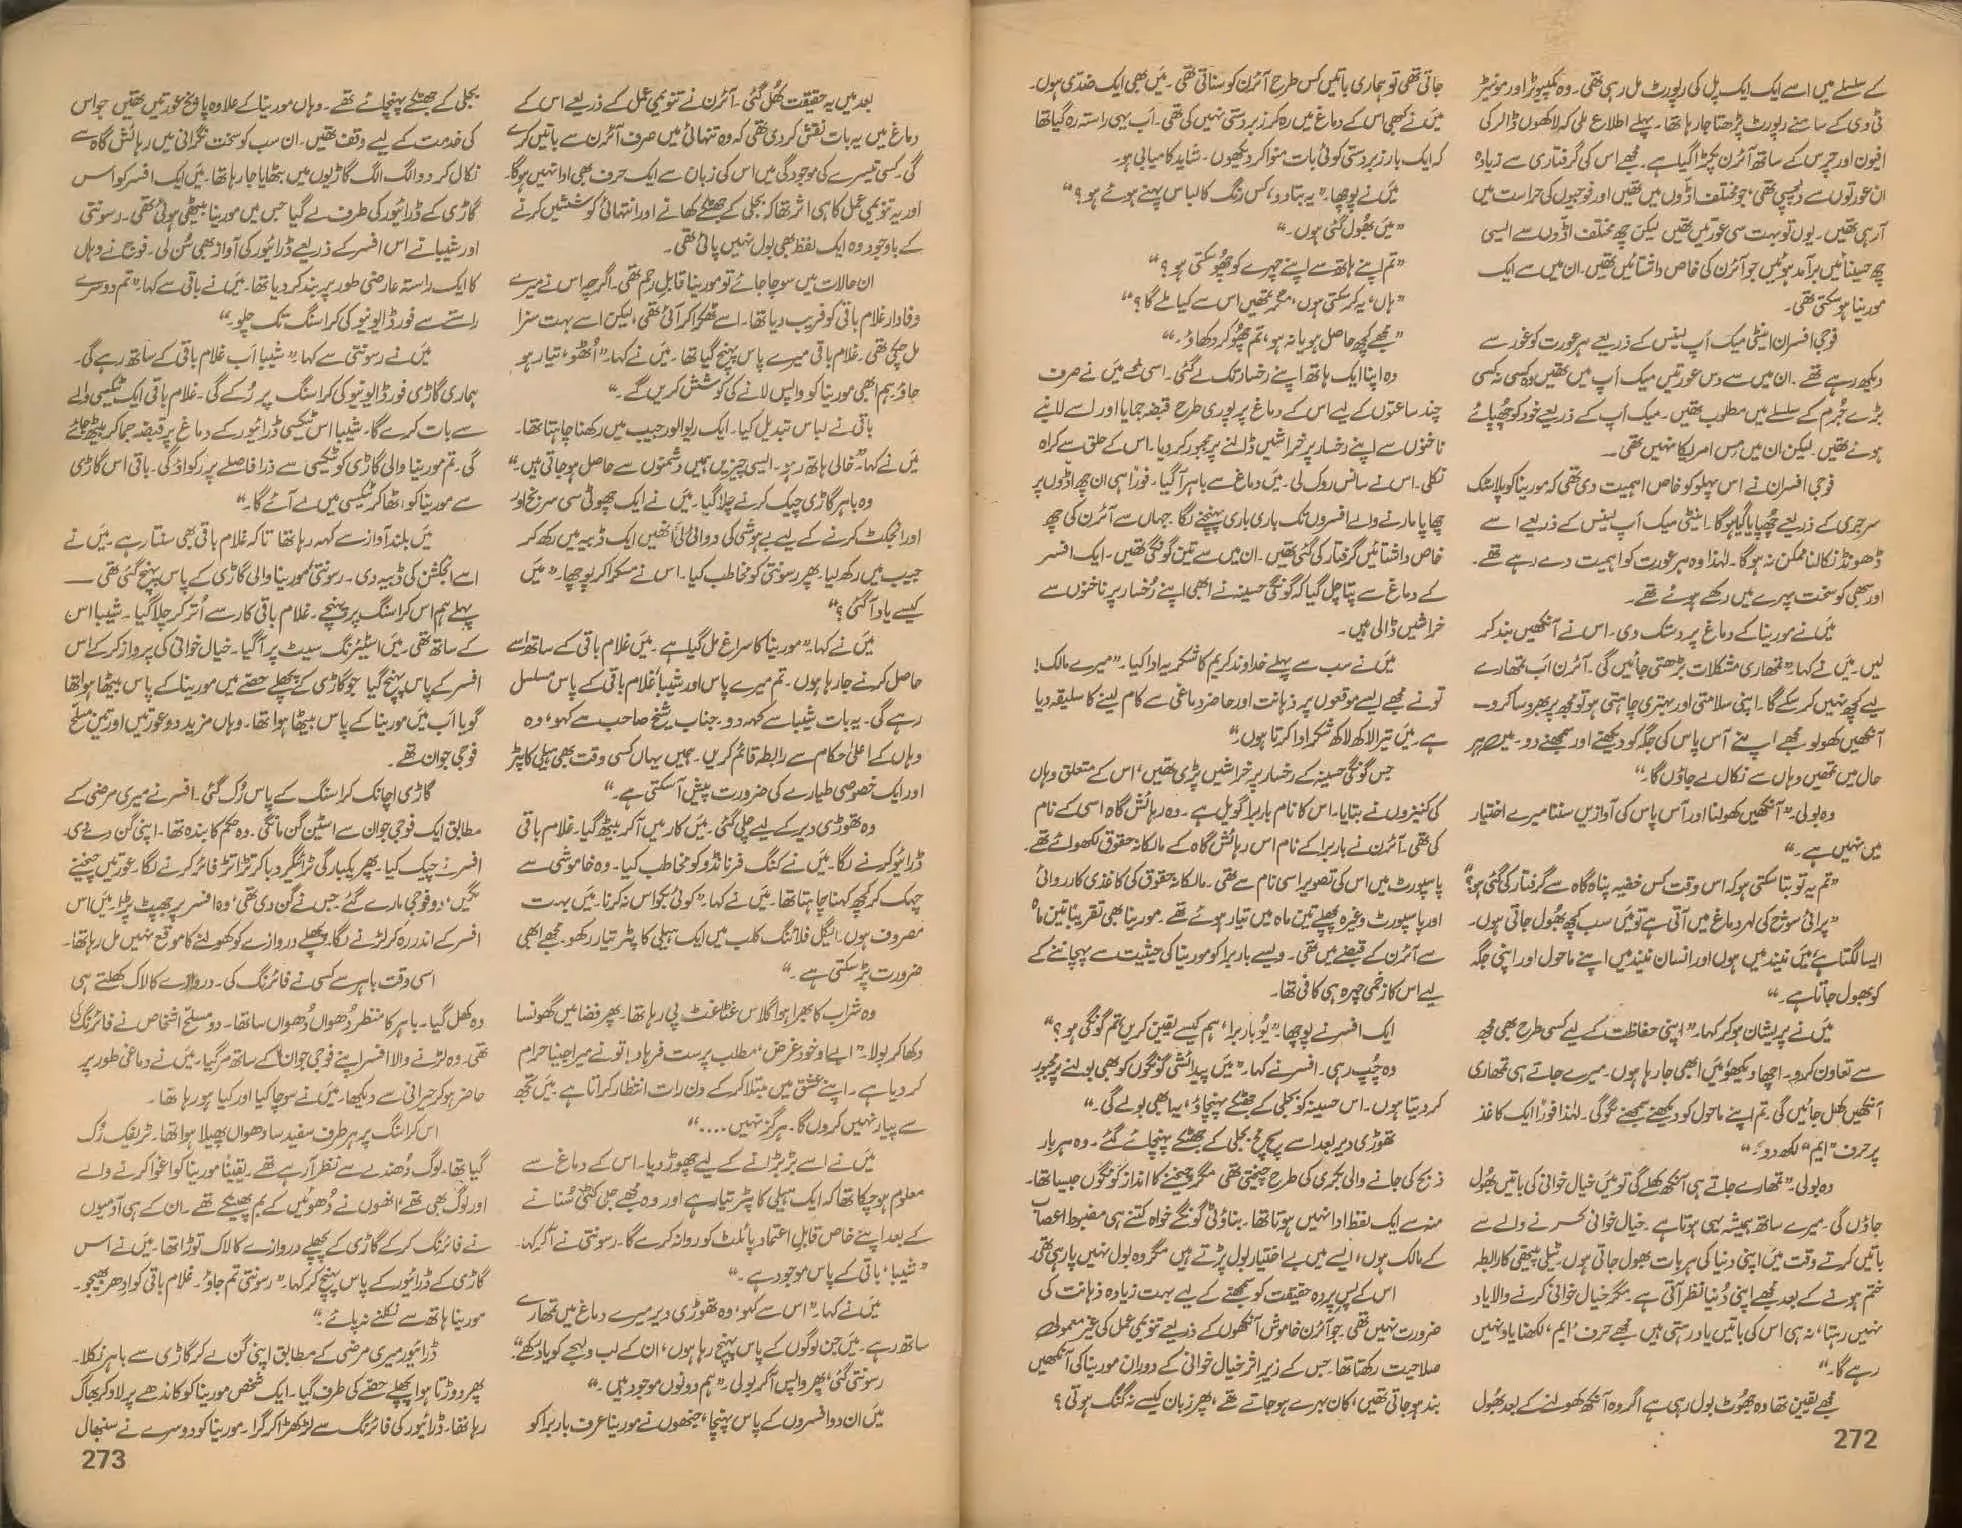 کے سلسلے میں اسے ایک ایک پل کی رپورٹ مل رہی تھی۔ وہ کمپیوٹر اور مونیٹر
ٹی وی کے سامنے رپورٹ پڑھتا جا رہا تھا۔ پہلے اطلاع ملی کہ لاکھوں ڈالر کی
افیون اور چرس کے ساتھ آئرن پکڑا گیا ہے۔ مجھے اس کی گرفتاری سے زیادہ
ان عورتوں سے دلچسپی تھی، جو مختلف اڈوں میں تھیں اور فوجیوں کی حراست میں
آ رہی تھیں۔ یوں تو بہت سی عورتیں تھیں لیکن چھ مختلف اڈوں سے ایسی
چھ حسینائیں برآمد ہوئیں جو آئرن کی خاص داشتائیں تھیں۔ ان میں سے ایک
مورینا ہو سکتی تھی۔
فوجی افسران اینٹی میک اَپ لینس کے ذریعے ہر عورت کو غور سے
دیکھ رہے تھے۔ ان میں سے دس عورتیں میک اَپ میں تھیں وہ کسی نہ کسی
بڑے جُرم کے سلسلے میں مطلوب تھیں۔ میک اَپ کے ذریعے خود کو چُھپائے
ہوئے تھیں۔ لیکن ان میں مِس امریکا نہیں تھی۔
فوجی افسران نے اس پہلو کو خاص اہمیت دی تھی کہ مورینا کو پلاسٹک
سرجری کے ذریعے چُھپایا گیا ہوگا۔ اینٹی میک اَپ لینس کے ذریعے اسے
ڈھونڈ نکالنا ممکن نہ ہوگا۔ لہٰذا وہ ہر عورت کو اہمیت دے رہے تھے۔
اور سبھی کو سخت پہرے میں رکھے ہوئے تھے۔
مَیں نے مورینا کے دماغ پر دستک دی۔ اس نے آنکھیں بند کر
لیں۔ مَیں نے کہا۔ "تمھاری مشکلات بڑھتی جائیں گی۔ آئرن اَب تمھارے
لیے کچھ نہیں کر سکے گا۔ اپنی سلامتی اور بہتری چاہتی ہو تو مجھ پر بھروسا کرو۔
آنکھیں کھولو مجھے اپنے آس پاس کی جگہ کو دیکھنے اور سمجھنے دو۔ میں ہر
حال میں تمھیں وہاں سے نکال لے جاؤں گا۔"
وہ بولی۔ "آنکھیں کھولنا اور آس پاس کی آوازیں سننا میرے اختیار
میں نہیں ہے۔"
"تم یہ تو بتا سکتی ہو کہ اس وقت کس خفیہ پناہ گاہ سے گرفتار کی گئی ہو؟"
"پرائی سوچ کی لہر دماغ میں آتی ہے تو مَیں سب کچھ بُھول جاتی ہوں۔
ایسا لگتا ہے، مَیں نیند میں ہوں اور انسان نیند میں اپنے ماحول اور اپنی جگہ
کو بھول جاتا ہے۔"
مَیں نے پریشان ہو کر کہا۔ "اپنی حفاظت کے لیے کسی طرح بھی مجھ
سے تعاون کرو۔ اچھا دیکھو مَیں ابھی جا رہا ہوں۔ میرے جاتے ہی تمھاری
آنکھیں کھل جائیں گی۔ تم اپنے ماحول کو دیکھنے سمجھنے لگو گی۔ لہٰذا فوراً ایک کاغذ
پر حرف "ایم" لکھ دو۔"
وہ بولی۔ "تمھارے جاتے ہی آنکھ کھلے گی تو مَیں خیال خوانی کی باتیں بُھول
جاؤں گی۔ میرے ساتھ ہمیشہ یہی ہوتا ہے۔ خیال خوانی کرنے والے سے
باتیں کرتے وقت مَیں اپنی دنیا کی ہر بات بھول جاتی ہوں۔ ٹیلی پیتھی کا رابطہ
ختم ہونے کے بعد مجھے اپنی دُنیا نظر آتی ہے۔ مگر خیال خوانی کرنے والا یاد
نہیں رہتا، نہ ہی اس کی باتیں یاد رہتی ہیں مجھے حرف 'ایم' لکھنا یاد نہیں
رہے گا۔"
مجھے یقین تھا وہ جُھوٹ بول رہی ہے اگر وہ آنکھ کھولنے کے بعد بُھول
جاتی تھی تو ہماری باتیں کس طرح آئرن کو سناتی تھی۔ مَیں بھی ایک ضدّی ہوں۔
مَیں نے کبھی اس کے دماغ میں رہ کر زبردستی نہیں کی تھی۔ اَب یہی راستہ رہ گیا تھا
کہ ایک بار زبردستی کوئی بات منوا کر دیکھوں۔ شاید کامیابی ہو۔
مَیں نے پوچھا۔ "یہ بتا دو، کس رنگ کا لباس پہنے ہوئے ہو؟"
"مَیں بُھول گئی ہوں۔"
"تم اپنے ہاتھ سے اپنے چہرے کو چُھو سکتی ہو؟"
"ہاں، یہ کر سکتی ہوں، مگر تمھیں اس سے کیا ملے گا؟"
"مجھے کچھ حاصل ہو یا نہ ہو، تم چُھو کر دکھاؤ۔"
وہ اپنا ایک ہاتھ اپنے رخسار تک لے گئی۔ اسی لمحے مَیں نے صرف
چند ساعتوں کے لیے اس کے دماغ پر پوری طرح قبضہ جمایا اور اسے اپنے
ناخنوں سے اپنے رخسار پر خراشیں ڈالنے پر مجبور کر دیا۔ اس کے حلق سے کراہ
نکلی۔ اس نے سانس روک لی۔ مَیں دماغ سے باہر آ گیا۔ فوراً ہی ان چھ اڈّوں پر
چھاپا مارنے والے افسروں تک باری باری پہنچنے لگا۔ جہاں سے آئرن کی چھ
خاص داشتائیں گرفتار کی گئی تھیں۔ ان میں سے تین گونگی تھیں۔ ایک افسر
کے دماغ سے پتا چل گیا کہ گونگی حسینہ نے ابھی اپنے رُخسار پر ناخنوں سے
خراشیں ڈالی ہیں۔
مَیں نے سب سے پہلے خداوندِ کریم کا شکریہ ادا کیا۔ "میرے مالک!
تو نے مجھے ایسے موقعوں پر ذہانت اور حاضر دماغی سے کام لینے کا سلیقہ دیا
ہے۔ مَیں تیرا لاکھ لاکھ شکر ادا کرتا ہوں۔"
جس گونگی حسینہ کے رخسار پر خراشیں پڑی تھیں، اس کے متعلق وہاں
کی کنیزوں نے بتایا۔ اس کا نام باربرا گویل ہے۔ وہ رہائش گاہ اسی کے نام
کی تھی۔ آئرن نے باربرا کے نام اس رہائش گاہ کے مالکانہ حقوق لکھوائے تھے۔
پاسپورٹ میں اس کی تصویر اسی نام سے تھی۔ مالکانہ حقوق کی کاغذی کارروائی
اور پاسپورٹ وغیرہ پچھلے تین ماہ میں تیار ہوئے تھے۔ مورینا بھی تقریباً تین ماہ
سے آئرن کے قبضے میں تھی۔ ویسے باربرا کو مورینا کی حیثیت سے پہچاننے کے
لیے اس کا زخمی چہرہ ہی کافی تھا۔
ایک افسر نے پوچھا۔ "یُو باربرا، ہم کیسے یقین کریں تم گونگی ہو؟"
وہ چُپ رہی۔ افسر نے کہا۔ "مَیں پیدائشی گونگوں کو بھی بولنے پر مجبور
کر دیتا ہوں۔ اس حسینہ کو بجلی کے جھٹکے پہنچاؤ، یہ ابھی بولے گی۔"
تھوڑی دیر بعد اسے سچ مچ بجلی کے جھٹکے پہنچائے گئے۔ وہ ہر بار
ذبح کی جانے والی بکری کی طرح چیختی تھی مگر چیخنے کا انداز گونگوں جیسا تھا۔
منہ سے ایک لفظ ادا نہیں ہوتا تھا۔ بناوٹی گونگے خواہ کتنے ہی مضبوط اعصاب
کے مالک ہوں، ایسے میں بے اختیار بول پڑتے ہیں مگر وہ بول نہیں پا رہی تھی۔
اس کے پس پردہ حقیقت کو سمجھنے کے لیے بہت زیادہ ذہانت کی
ضرورت نہیں تھی۔ جو آئرن خاموش آنکھوں کے ذریعے تنویمی عمل کی غیر معمولی
صلاحیت رکھتا تھا۔ جس کے زیر اثر خیال خوانی کے دوران مورینا کی آنکھیں
بند ہو جاتی تھیں، کان بہرے ہو جاتے تھے، پھر زبان کیسے نہ گنگ ہوتی؟
272
بعد میں یہ حقیقت کھل گئی۔ آئرن نے تنویمی عمل کے ذریعے اس کے
دماغ میں یہ بات نقش کر دی تھی کہ وہ تنہائی میں صرف آئرن سے باتیں کرے
گی۔ کسی تیسرے کی موجودگی میں اس کی زبان سے ایک حرف بھی ادا نہیں ہوگا۔
اور یہ تنویمی عمل کا ہی اثر تھا کہ بجلی کے جھٹکے کھانے اور انتہائی کوششیں کرنے
کے باوجود وہ ایک لفظ بھی بول نہیں پائی تھی۔
ان حالات میں سوچا جائے تو مورینا قابلِ رحم تھی۔ اگرچہ اس نے میرے
وفادار غلام باقی کو فریب دیا تھا۔ اسے ٹھکرا کر آئی تھی، لیکن اسے بہت سزا
مل چکی تھی۔ غلام باقی میرے پاس پہنچ گیا تھا۔ مَیں نے کہا۔ "اُٹھو، تیار ہو
جاؤ، ہم ابھی مورینا کو واپس لانے کی کوشش کریں گے۔"
باقی نے لباس تبدیل کیا۔ ایک ریوالور جیب میں رکھنا چاہتا تھا۔
مَیں نے کہا۔ "خالی ہاتھ رہو۔ ایسی چیزیں ہمیں دشمنوں سے حاصل ہو جاتی ہیں۔"
وہ باہر گاڑی چیک کرنے چلا گیا۔ مَیں نے ایک چھوٹی سی سرنج اور
اور انجکٹ کرنے کے لیے بے ہوشی کی دوائی لی۔ انھیں ایک ڈبیہ میں رکھ کر
جیب میں رکھ لیا۔ پھر رسونتی کو مخاطب کیا۔ اس نے مسکرا کر پوچھا۔ "مَیں
کیسے یاد آ گئی؟"
مَیں نے کہا۔ "مورینا کا سراغ مل گیا ہے۔ مَیں غلام باقی کے ساتھ اسے
حاصل کرنے جا رہا ہوں۔ تم میرے پاس اور شیبا غلام باقی کے پاس مسلسل
رہے گی۔ یہ بات شیبا سے کہہ دو۔ جناب شیخ صاحب سے کہو، وہ
وہاں کے اعلیٰ حکام سے رابطہ قائم کریں۔ ہمیں یہاں کسی وقت بھی ہیلی کاپٹر
اور ایک خصوصی طیارے کی ضرورت پیش آ سکتی ہے۔"
وہ تھوڑی دیر کے لیے چلی گئی۔ مَیں کار میں آ کر بیٹھ گیا۔ غلام باقی
ڈرائیو کرنے لگا۔ مَیں نے کنگ فرنانڈو کو مخاطب کیا۔ وہ خاموشی سے
چہک کر کچھ کہنا چاہتا تھا۔ مَیں نے کہا۔ "کوئی بکواس نہ کرنا۔ مَیں بہت
مصروف ہوں۔ ایگل فلائنگ کلب میں ایک ہیلی کاپٹر تیار رکھو۔ مجھے ابھی
ضرورت پڑ سکتی ہے۔"
وہ شراب کا بھرا ہوا گلاس غٹاغٹ پی رہا تھا۔ پھر فضا میں گھونسا
دکھا کر بولا۔ "ابے او خود غرض، مطلب پرست فرہاد! تو نے میرا جینا حرام
کر دیا ہے۔ اپنے عشق میں مبتلا کر کے دن رات انتظار کراتا ہے۔ مَیں تجھ
سے پیار نہیں کروں گا۔ ہرگز نہیں ...."
مَیں نے اسے بڑبڑانے کے لیے چھوڑ دیا۔ اس کے دماغ سے
معلوم ہو چکا تھا کہ ایک ہیلی کاپٹر تیار ہے اور وہ مجھے جلی کٹی سُنانے
کے بعد اپنے خاص قابلِ اعتماد پائلٹ کو روانہ کرے گا۔ رسونتی نے آ کر کہا۔
"شیبا، باقی کے پاس موجود ہے۔"
مَیں نے کہا۔ "اس سے کہو، وہ تھوڑی دیر میرے دماغ میں تمھارے
ساتھ رہے۔ مَیں جن لوگوں کے پاس پہنچ رہا ہوں، ان کے لب و لہجے کو یاد رکھے۔"
رسونتی گئی، پھر واپس آ کر بولی۔ "ہم دونوں موجود ہیں۔"
مَیں ان دو افسروں کے پاس پہنچا، جنھوں نے مورینا عرف باربرا کو
بجلی کے جھٹکے پہنچائے تھے۔ وہاں مورینا کے علاوہ پانچ عورتیں تھیں جو اس
کی خدمت کے لیے وقف تھیں۔ ان سب کو سخت نگرانی میں رہائش گاہ سے
نکال کر دو الگ الگ گاڑیوں میں بٹھایا جا رہا تھا۔ مَیں ایک افسر کو اس
گاڑی کے ڈرائیور کی طرف لے گیا جس میں مورینا بیٹھی ہوئی تھی۔ رسونتی
اور شیبا نے اس افسر کے ذریعے ڈرائیور کی آواز بھی سُن لی۔ فوج نے وہاں
کا ایک راستہ عارضی طور پر بند کر دیا تھا۔ مَیں نے باقی سے کہا۔ "تم دوسرے
راستے سے فورڈ ایونیو کی کراسنگ تک چلو۔"
مَیں نے رسونتی سے کہا۔ "شیبا اَب غلام باقی کے ساتھ رہے گی۔
ہماری گاڑی فورڈ ایونیو کی کراسنگ پر رُکے گی۔ غلام باقی ایک ٹیکسی والے
سے بات کرے گا۔ شیبا اس ٹیکسی ڈرائیور کے دماغ پر قبضہ جما کر بیٹھ جائے
گی۔ تم مورینا والی گاڑی کو ٹیکسی سے ذرا فاصلے پر رکواؤ گی۔ باقی اس گاڑی
سے مورینا کو اٹھا کر ٹیکسی میں لے آئے گا۔"
مَیں بلند آواز سے کہہ رہا تھا تاکہ غلام باقی بھی سنتا رہے۔ مَیں نے
اسے انجکشن کی ڈبیہ دی۔ رسونتی مورینا والی گاڑی کے پاس پہنچ گئی تھی۔
پہلے ہم اس کراسنگ پر پہنچے۔ غلام باقی کار سے اُتر کر چلا گیا۔ شیبا اس
کے ساتھ تھی۔ مَیں اسٹیئرنگ سیٹ پر آ گیا۔ خیال خوانی کی پرواز کر کے اس
افسر کے پاس پہنچ گیا جو گاڑی کے پچھلے حصے میں مورینا کے پاس بیٹھا ہوا تھا
گویا اَب مَیں مورینا کے پاس بیٹھا ہوا تھا۔ وہاں مزید دو عورتیں اور تین مسلح
فوجی جوان تھے۔
گاڑی اچانک کراسنگ کے پاس رُک گئی۔ افسر نے میری مرضی کے
مطابق ایک فوجی جوان سے اسٹین گن مانگی۔ وہ حکم کا بندہ تھا۔ اپنی گن دے دی۔
افسر نے چیک کیا۔ پھر یکبارگی ٹرائیگر دبا کر تڑاتڑ فائر کرنے لگا۔ عورتیں چیخنے
لگیں، دو فوجی مارے گئے۔ جس نے گن دی تھی، وہ افسر پر جھپٹ پڑا۔ مَیں اس
افسر کے اندر رہ کر لڑنے لگا۔ پچھلے دروازے کو کھولنے کا موقع نہیں مل رہا تھا۔
اسی وقت باہر سے کسی نے فائرنگ کی۔ دروازے کا لاک کھلتے ہی
وہ کھل گیا۔ باہر کا منظر دُھواں دُھواں سا تھا۔ دو مسلح اشخاص نے فائرنگ کی
تھی۔ وہ لڑنے والا افسر اپنے فوجی جوان کے ساتھ مر گیا۔ مَیں نے دماغی طور پر
حاضر ہو کر حیرانی سے دیکھا۔ مَیں نے سوچا کیا اور کیا ہو رہا تھا۔
اس کراسنگ پر ہر طرف سفید سا دھواں پھیلا ہوا تھا۔ ٹریفک رُک
گیا تھا۔ لوگ دُھندلے سے نظر آ رہے تھے۔ یقیناً مورینا کو اغوا کرنے والے
اور لوگ بھی تھے، انھوں نے دُھوئیں کے بم پھینکے تھے۔ ان کے ہی آدمیوں
نے فائرنگ کر کے گاڑی کے پچھلے دروازے کا لاک توڑا تھا۔ مَیں نے اس
گاڑی کے ڈرائیور کے پاس پہنچ کر کہا۔ "رسونتی تم جاؤ۔ غلام باقی کو ادھر بھیجو۔
مورینا ہاتھ سے نکلنے نہ پائے۔"
ڈرائیور میری مرضی کے مطابق اپنی گن لے کر گاڑی سے باہر نکلا۔
پھر دوڑتا ہوا پچھلے حصّے کی طرف گیا۔ ایک شخص مورینا کو کاندھے پر لاد کر بھاگ
رہا تھا۔ ڈرائیور کی فائرنگ سے لڑکھڑا کر گرا۔ مورینا کو دوسرے نے سنبھال
273